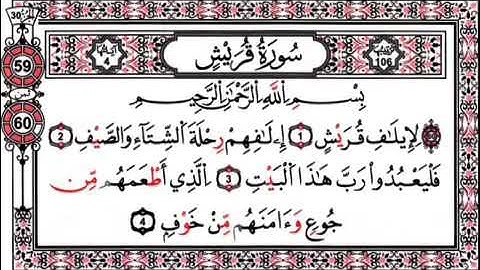 سُورَةُ قُرَيْشٍ
4
106
30
59
60
بِسْمِ اللَّهِ الرَّحْمَٰنِ الرَّحِيمِ
لِإِيلَافِ قُرَيْشٍ 1 إِۦلَافِهِمْ رِحْلَةَ الشِّتَآءِ وَالصَّيْفِ 2
فَلْيَعْبُدُوا۟ رَبَّ هَٰذَا الْبَيْتِ 3 الَّذِي أَطْعَمَهُم مِّن
جُوعٍ وَءَامَنَهُم مِّنْ خَوْفٍ 4